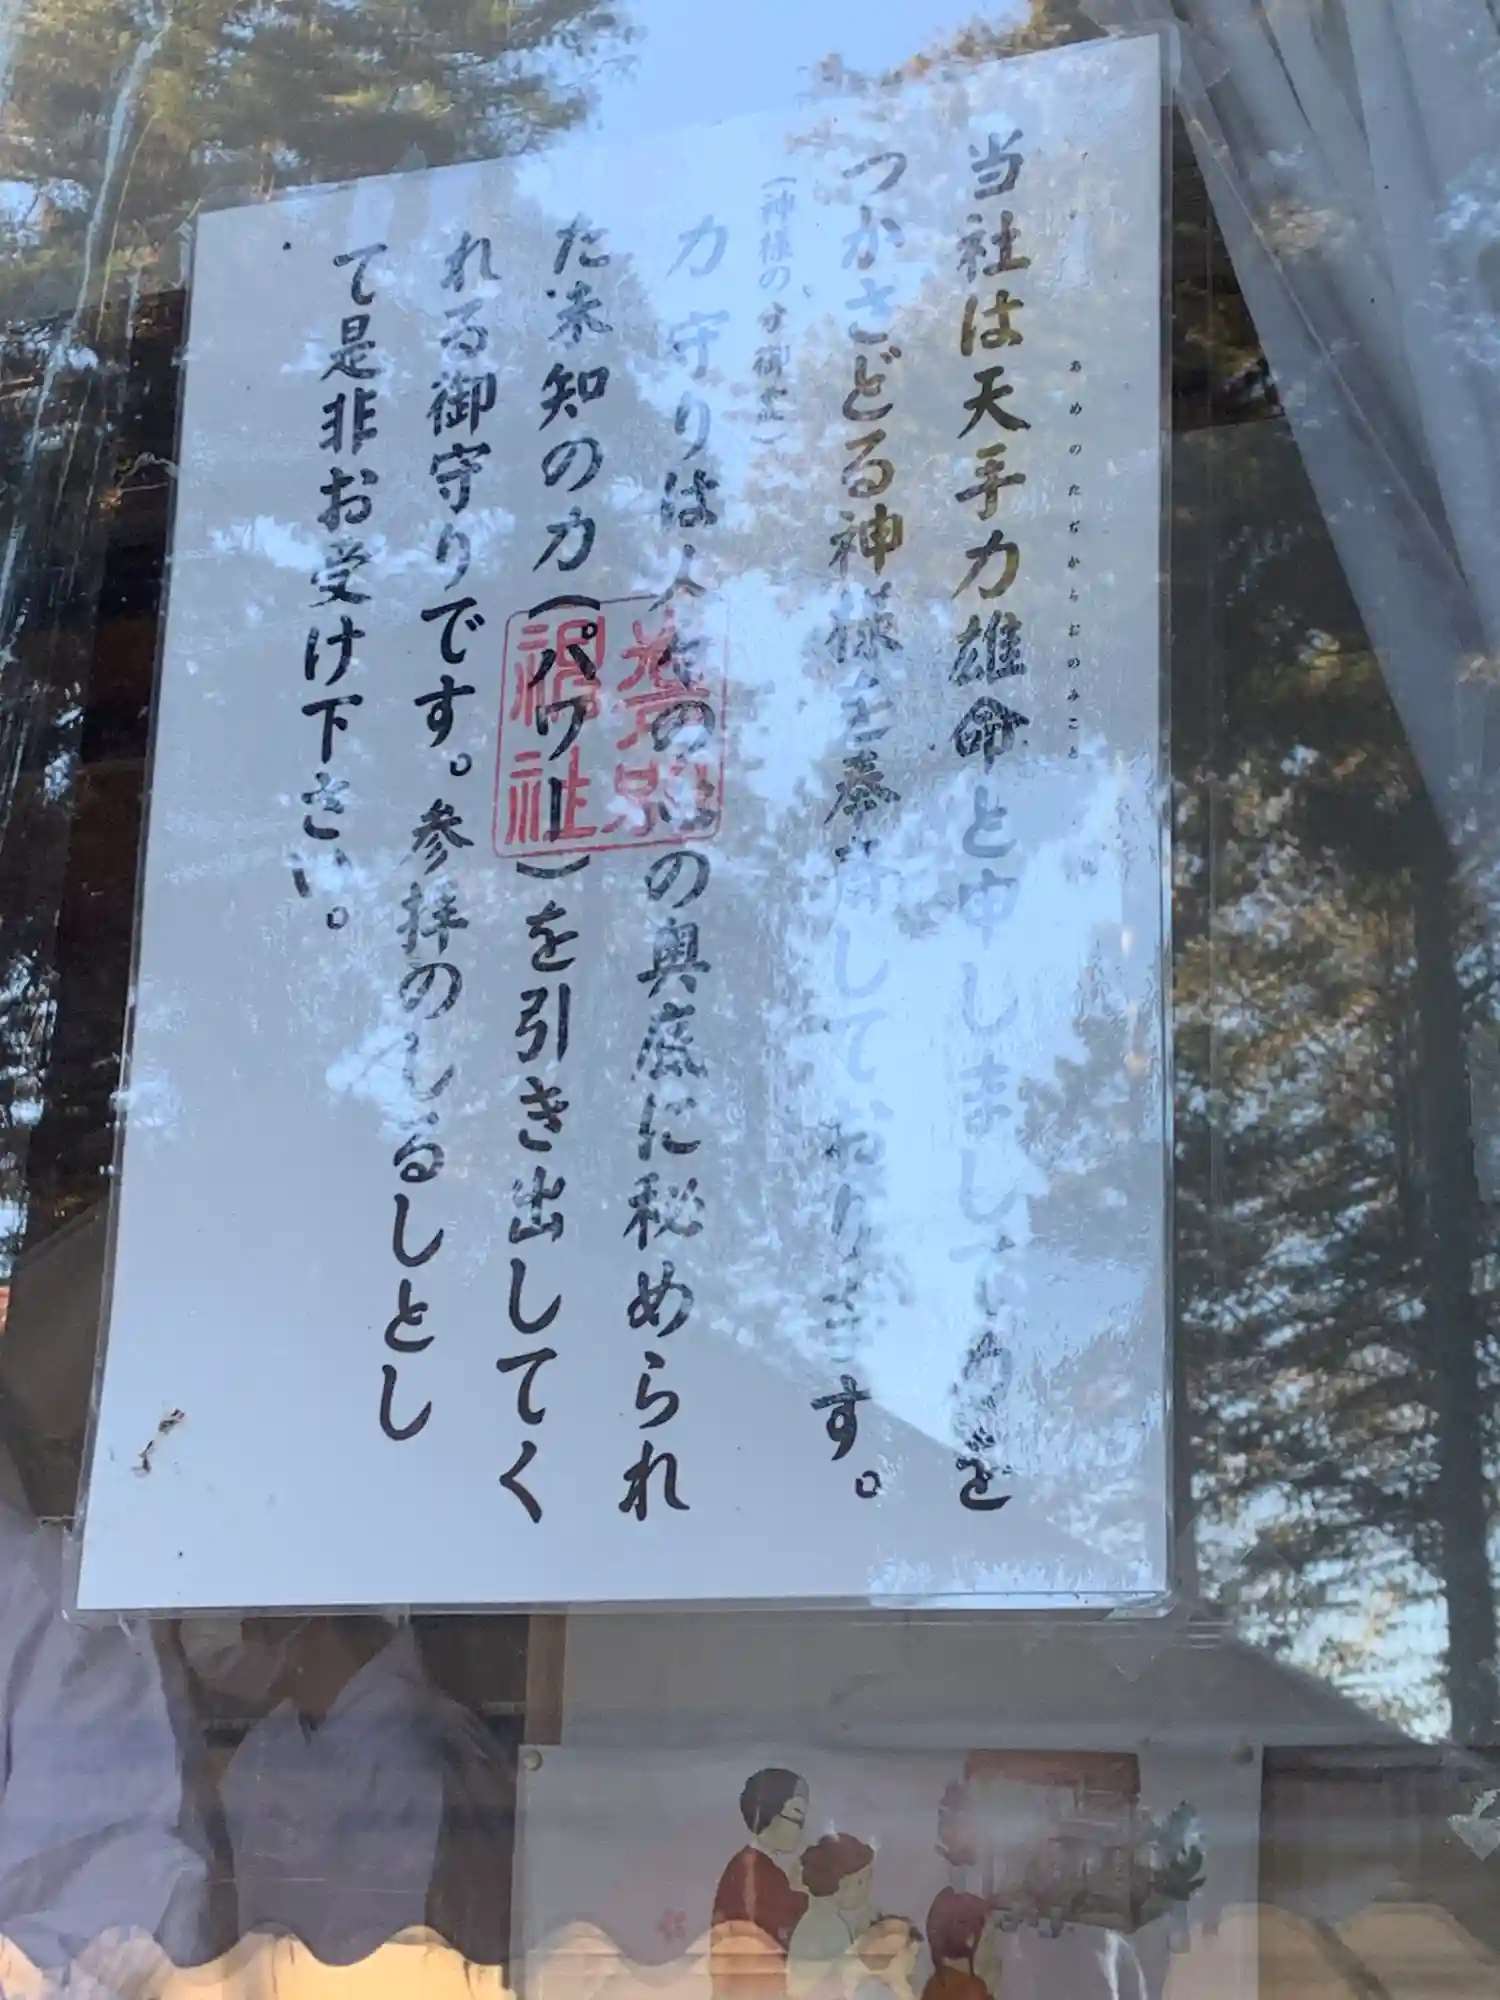 当社は天手力雄命と申しまして力を
あめのたぢからおのみこと
つかさどる神様を奉斎しております。
(神様の分御霊)
力守りは人々の心の奥底に秘められ
た未知の力(パワー)を引き出してく
れる御守りです。参拝のしるしとし
て是非お受け下さい。